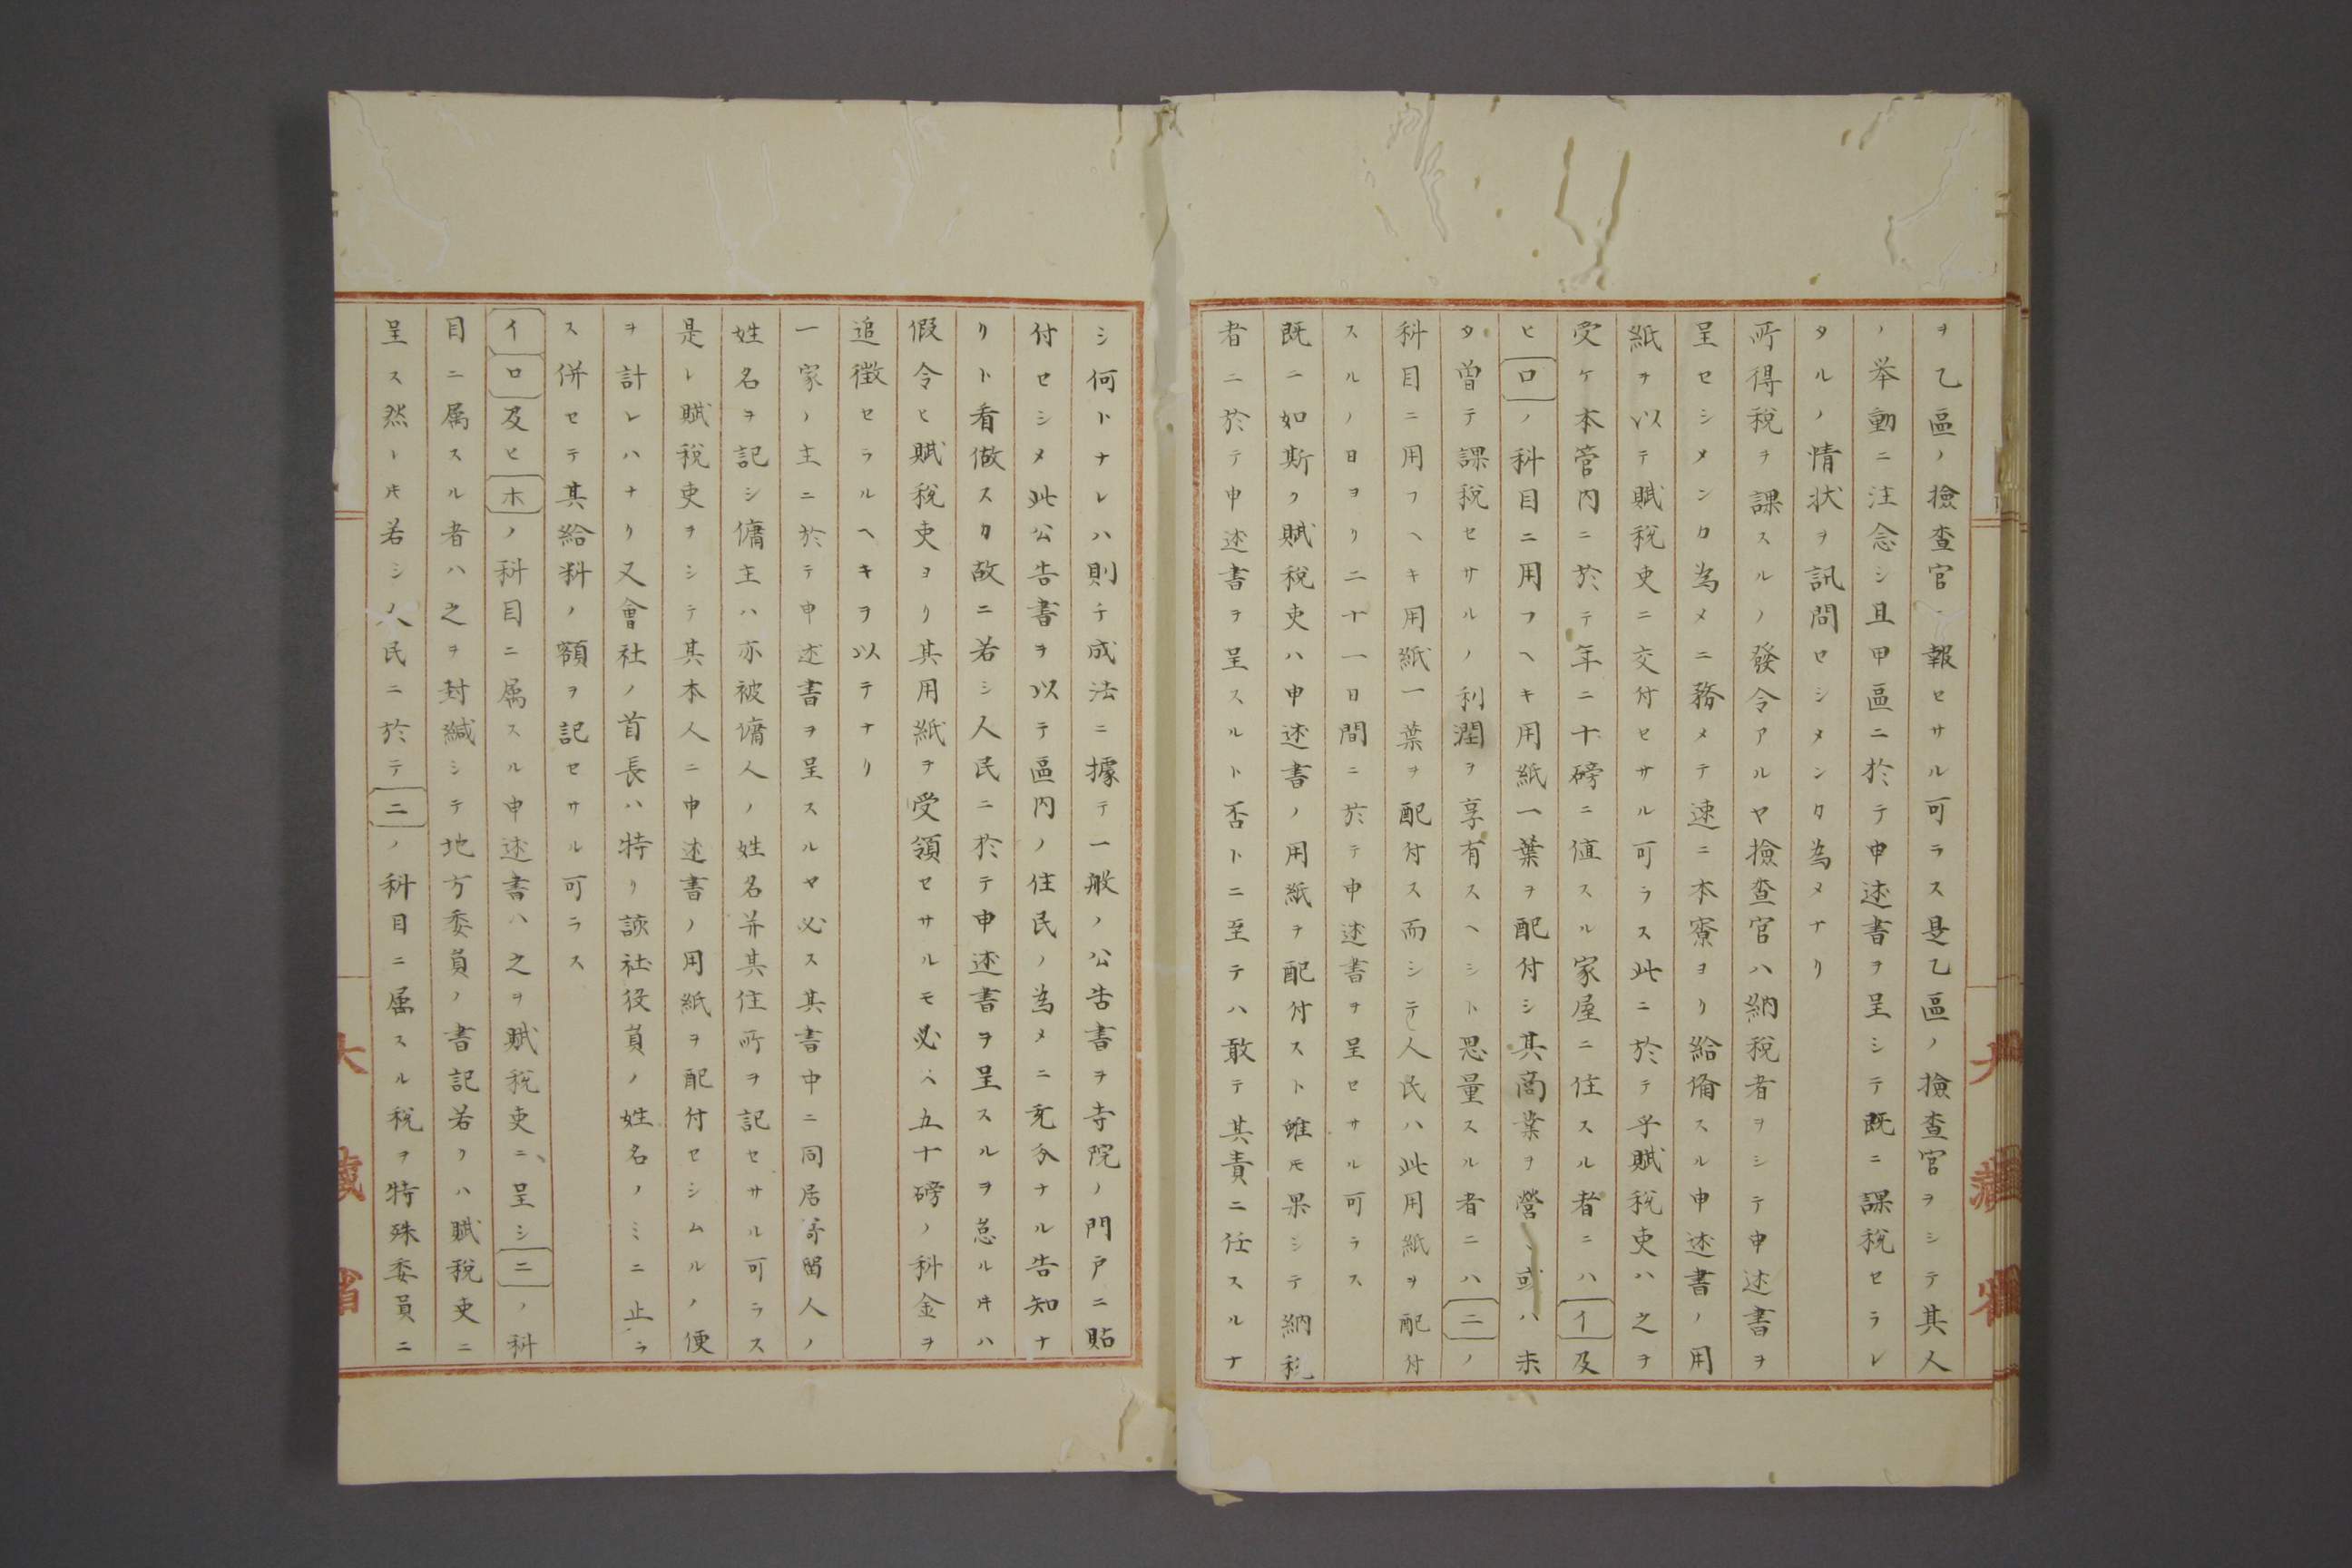 ヲ乙區ノ撿査官ニ報セサル可ラス是乙區ノ撿査官ヲシテ其人
ノ举動ニ注念シ且甲區ニ於テ申述書ヲ呈シテ既ニ課税セラレ
タルノ情状ヲ訊問セシメンタ為メナリ
所得税ヲ課スルノ發令アルヤ撿査官ハ納税者ヲシテ申述書ヲ
呈セシメンカ為メニ務メテ速ニ本寮ヨリ給備スル申述書ノ用
紙ヲ以テ賦税吏ニ交付セサル可ラス此ニ於テ乎賦税吏ハ之ヲ
受ケ本管内ニ於テ年ニ十磅ニ値スル家屋ニ住スル者ニハイ及
ヒロノ科目ニ用フヘキ用紙一葉ヲ配付シ其商業ヲ營ミ或ハ未
タ曽テ課税セサルノ利潤ヲ享有スヘシト思量スル者ニハニノ
科目ニ用フヘキ用紙一葉ヲ配付ス而シテ人民ハ此用紙ヲ配付
スルノ日ヨリ二十一日間ニ於テ申述書ヲ呈セサル可ラス
既ニ如斯ク賦税吏ハ申述書ノ用紙ヲ配付スト雖モ果シテ納税
者ニ於テ申述書ヲ呈スルト否トニ至テハ敢テ其責ニ任スルナ
シ何トナレハ則チ成法ニ據テ一般ノ公告書ヲ寺院ノ門戸ニ貼
付セシメ此公告書ヲ以テ區内ノ住民ノ為メニ充分ナル告知ナ
リト看做スカ故ニ若シ人民ニ於テ申述書ヲ呈スルヲ怠ル時ハ
假令ヒ賦税吏ヨリ其用紙ヲ受領セサルモ必ヘ五十磅ノ科金ヲ
追徴セラルヘキヲ以テナリ
一家ノ主ニ於テ申述書ヲ呈スルヤ必ス其書中ニ同居寄留人ノ
姓名ヲ記シ傭主ハ亦被傭人ノ姓名并其住所ヲ記セサル可ラス
是レ賦税吏ヲシテ其本人ニ申述書ノ用紙ヲ配付セシムルノ便
ヲ計レハナリ又會社ノ首長ハ特リ該社役員ノ姓名ノミニ止ラ
ス併セテ其給料ノ額ヲ記セサル可ラス
イロ及ヒホノ科目ニ属スル申述書ハ之ヲ賦税吏ニ呈シニノ科
目ニ属スル者ハ之ヲ封緘シテ地方委員ノ書記若クハ賦税吏ニ
呈ス然トモ若シ人民ニ於テニノ科目ニ属スル税ヲ特殊委員ニ
大藏省
大藏省